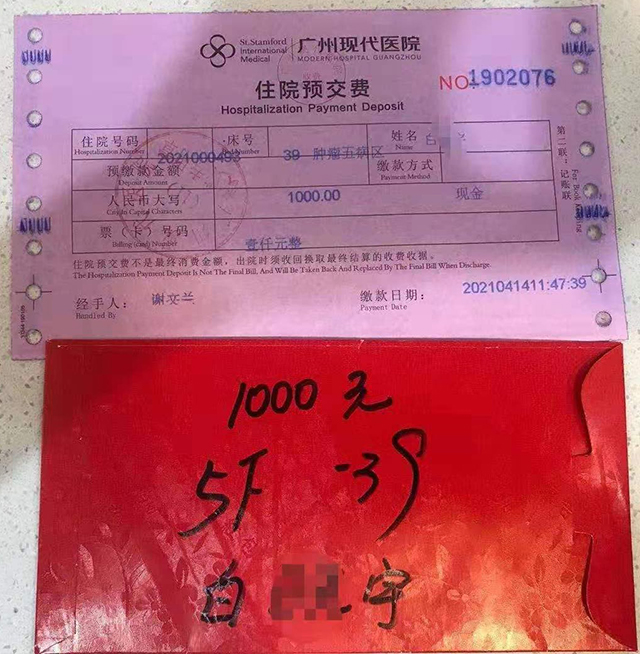 St.Stamford International Medical 广州现代医院
MODERN HOSPITAL GUANGZHOU
住院预交费
Hospitalization Payment Deposit
NO.1902076
住院号码 2021000493 床号 39 肿瘤五病区 姓名 白
Hospitalization Number
预缴款金额 1000.00 缴款方式 现金
Deposit Amount Payment Method
人民币大写
票(卡)号码 壹仟元整
住院预交费不是最终消费金额,出院时须收回换取最终结算的收费收据。
The Hospitalization Payment Deposit Is Not The Final Bill, And Will Be Taken Back And Replaced By The Final Bill When Discharge.
经手人: 谢文兰 缴款日期: 2021041411:47:39
Handled By Payment Date
第二联:记账联
1000元
5F -39
白 宇